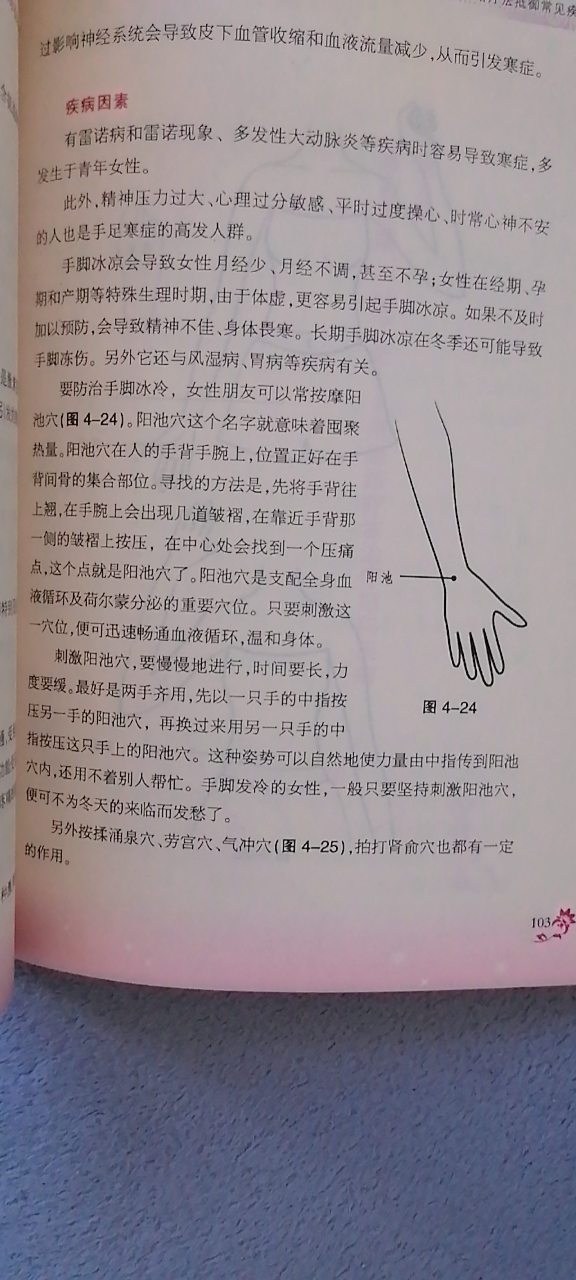 法抵御常见疾
过影响神经系统会导致皮下血管收缩和血液流量减少,从而引发寒症。
疾病因素
有雷诺病和雷诺现象、多发性大动脉炎等疾病时容易导致寒症,多
发生于青年女性。
此外,精神压力过大、心理过分敏感、平时过度操心、时常心神不安
的人也是手足寒症的高发人群。
手脚冰凉会导致女性月经少、月经不调,甚至不孕;女性在经期、孕
期和产期等特殊生理时期,由于体虚,更容易引起手脚冰凉。如果不及时
加以预防,会导致精神不佳、身体畏寒。长期手脚冰凉在冬季还可能导致
手脚冻伤。另外它还与风湿病、胃病等疾病有关。
要防治手脚冰冷，女性朋友可以常按摩阳
池穴(图4-24)。阳池穴这个名字就意味着囤聚
热量。阳池穴在人的手背手腕上,位置正好在手
背间骨的集合部位。寻找的方法是,先将手背往
上翘,在手腕上会出现几道皱褶,在靠近手背那
一侧的皱褶上按压，在中心处会找到一个压痛
点,这个点就是阳池穴了。阳池穴是支配全身血
液循环及荷尔蒙分泌的重要穴位。只要刺激这
一穴位,便可迅速畅通血液循环,温和身体。
刺激阳池穴,要慢慢地进行,时间要长,力
度要缓。最好是两手齐用,先以一只手的中指按
压另一手的阳池穴，再换过来用另一只手的中
指按压这只手上的阳池穴。这种姿势可以自然地使力量由中指传到阳池
穴内,还用不着别人帮忙。手脚发冷的女性,一般只要坚持刺激阳池穴,
便可不为冬天的来临而发愁了。
另外按揉涌泉穴、劳宫穴、气冲穴(图4-25),拍打肾俞穴也都有一定
的作用。
阳池
图4-24
103